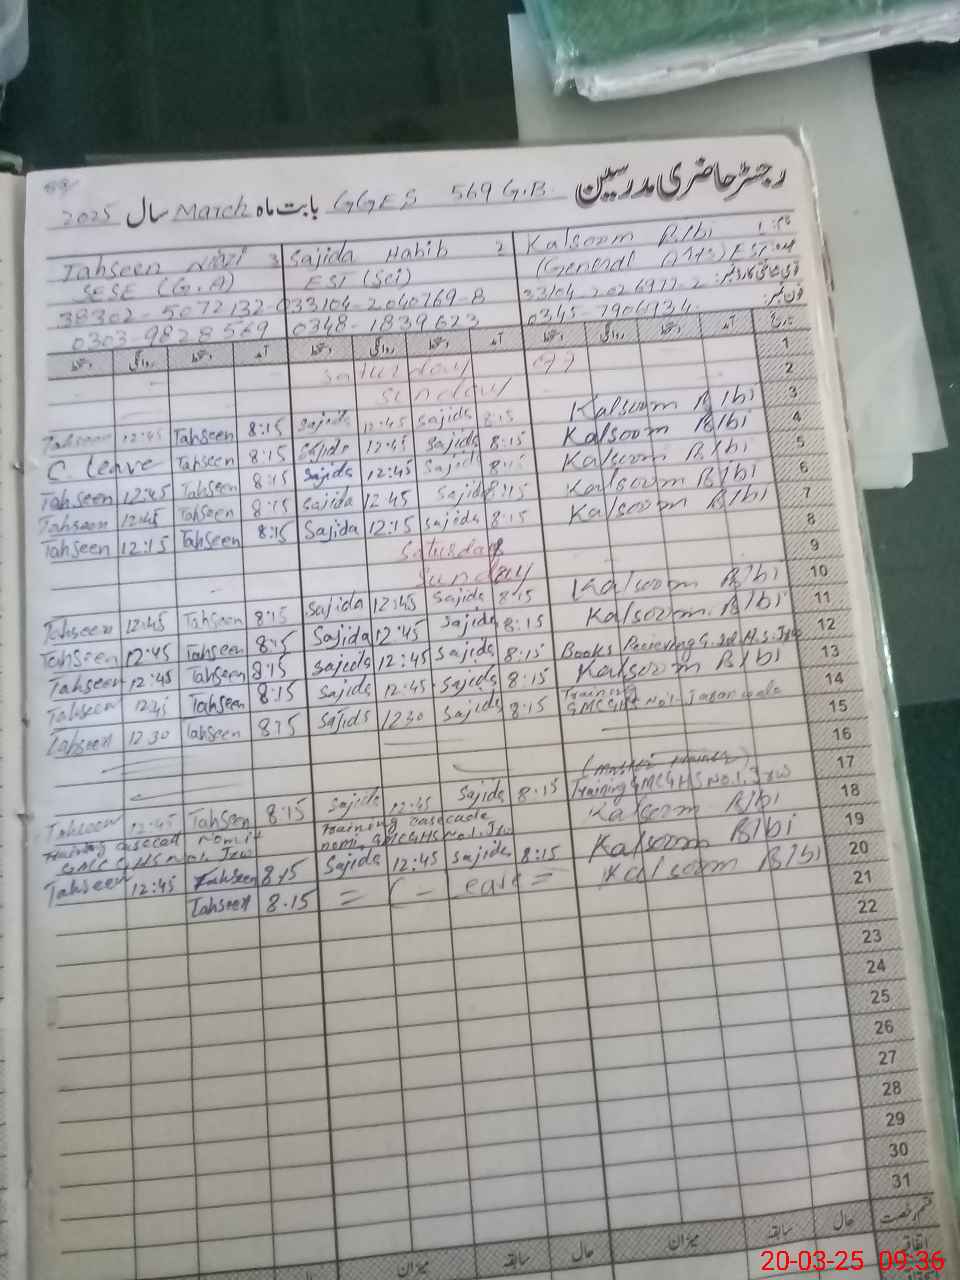 رجسٹر حاضری مدرسین GGES 569 G.B بابت ماہ March سال 2025
نام: 1 Kalsoom Bibi 2 Sajida Habib 3 Tahseen Niazi
عہدہ: (General Arts) EST EST (Sci) SESE (G.A)
قومی شناختی کارڈ نمبر: 33104-2040769-8 38302-5072132-0
فون نمبر: 0348-1839623 0303-9828569
تاریخ آمد دستخط روانگی دستخط آمد دستخط روانگی دستخط آمد دستخط روانگی دستخط
1 Saturday
2 Sunday
3 Kalsoom Bibi 8:15 Sajida 12:45 Sajida 8:15 Tahseen 12:45 Tahseen
4 Kalsoom Bibi 8:15 Sajida 12:45 Sajida 8:15 Tahseen C. leave
5 Kalsoom Bibi 8:15 Sajida 12:45 Sajida 8:15 Tahseen 12:45 Tahseen
6 Kalsoom Bibi 8:15 Sajida 12:45 Sajida 8:15 Tahseen 12:45 Tahseen
7 Kalsoom Bibi 8:15 Sajida 12:15 Sajida 8:15 Tahseen 12:15 Tahseen
8 Saturday
9 Sunday
10 Kalsoom Bibi 8:15 Sajida 12:45 Sajida 8:15 Tahseen 12:45 Tahseen
11 Kalsoom Bibi 8:15 Sajida 12:45 Sajida 8:15 Tahseen 12:45 Tahseen
12 Books 8:15 Sajida 12:45 Sajida 8:15 Tahseen 12:45 Tahseen
13 Kalsoom Bibi 8:15 Sajida 12:45 Sajida 8:15 Tahseen 12:45 Tahseen
14 Training GMCGHS No1. Jaranwala 8:15 Sajida 12 30 Sajida 8:15 Tahseen 12 30 Tahseen
15
16
17 (Master Trainer) Training GMCGHS No.1, Jrw 8:15 Sajida 12:45 Sajida 8:15 Tahseen 12:45 Tahseen
18 Kalsoom Bibi Training nomi, GMCGHS No.1. Jrw Training GMCGHS No1. Jrw
19 Kalsoom Bibi 8:15 Sajida 12:45 Sajida 8:15 Tahseen 12:45 Tahseen
20 Kalsoom Bibi = C- eave = 8.15 Tahseen
21
22
23
24
25
26
27
28
29
30
31
قسم رخصت حال سابقہ میزان حال سابقہ میزان
اتفاقیہ
20-03-25 09:36